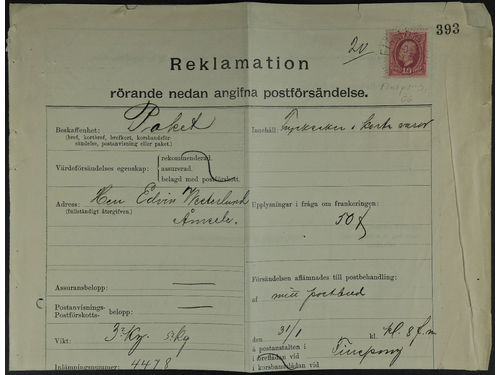 393
20
Reklamation
rörande nedan angifna postförsändelse.
Beskaffenhet: Paket
(bref, kortbref, brefkort, korsbandsför-
sändelse, postanvisning eller paket.)
Innehåll: Trycksaker o korta varor
Värdeförsändelses egenskap:
rekommenderad.
assurerad.
belagd med postförskott.
Adress: Herr Edvin Westerlund
(fullständigt återgifven) Åmsele.
Upplysningar i fråga om frankeringen:
50 f
Assuransbelopp:
Försändelsen aflämnades till postbehandling:
af mitt postbud
Postanvisnings-
Postförskotts- belopp:
den 31/1 kl. kl. 8 f.m
Vikt: 3 Kg.
å postanstalten i
i brefladan vid
i korsbandslådan vid
Inlämningsnummer: 4478